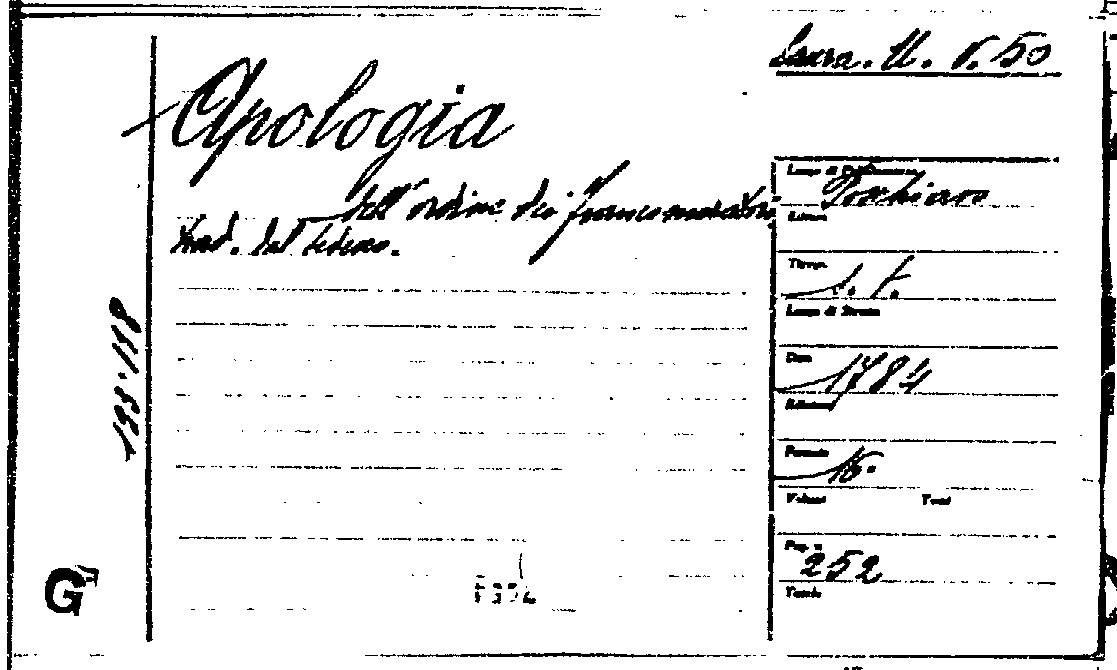 Laura. U. V. 50
Apologia
dell'ordine dei francomuratori
trad. dal tedesco.
Luogo di Pubblicazione
Poschiavo
Editore
Tipogr.
s. t.
Luogo di Stampa
Data
1784
Edizione
Formato
16.
Volumi Tomi
Pag. n.
252
Tavole
G